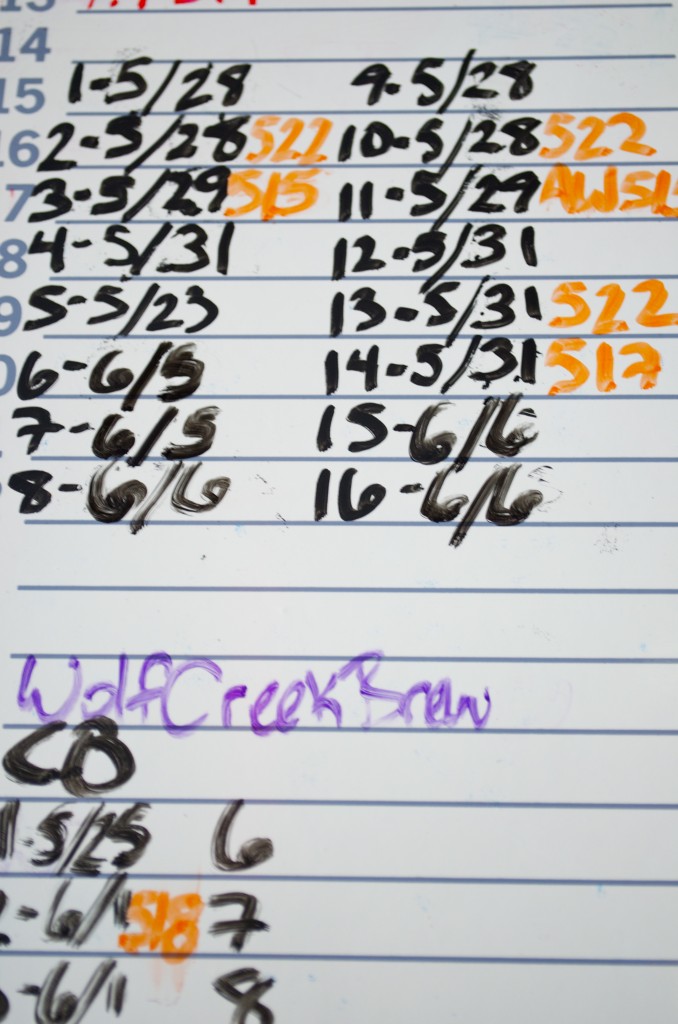 14
15 1-5/28 9-5/28
16 2-5/28 522 10-5/28 522
7 3-5/29 515 11-5/29
8 4-5/31 12-5/31
9 5-5/23 13-5/31 522
0 6-6/5 14-5/31 517
7-6/5 15-6/6
8-6/6 16-6/6
WolfCreekBrew
CB
1-5/25 6
-6/1 518 7
-6/1 8